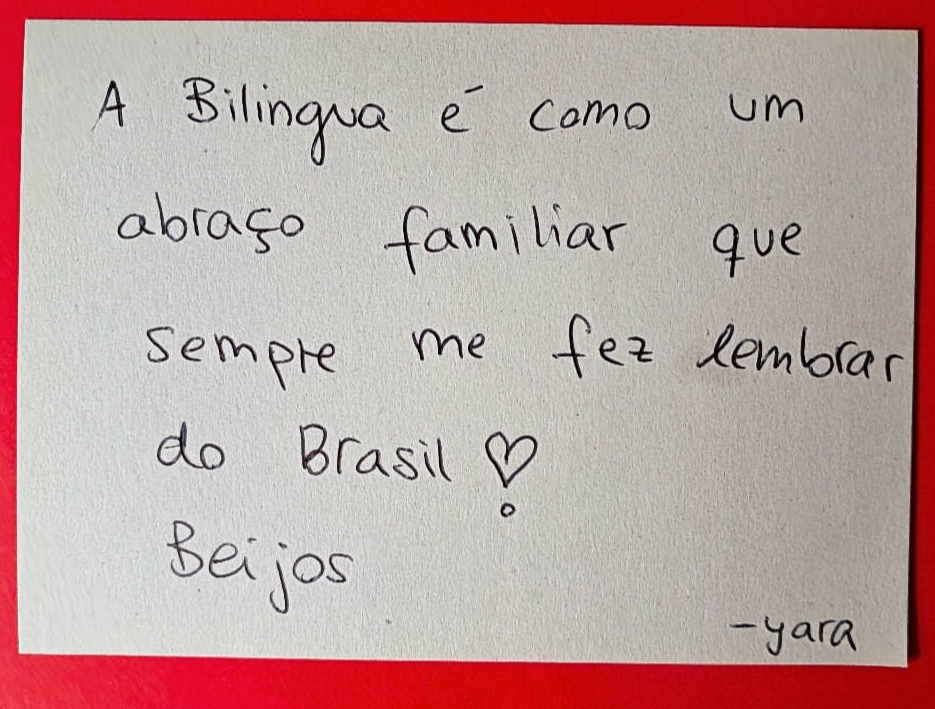 A Bilingua é como um
abraço familiar que
sempre me fez lembrar
do Brasil ♡
Beijos
-yara